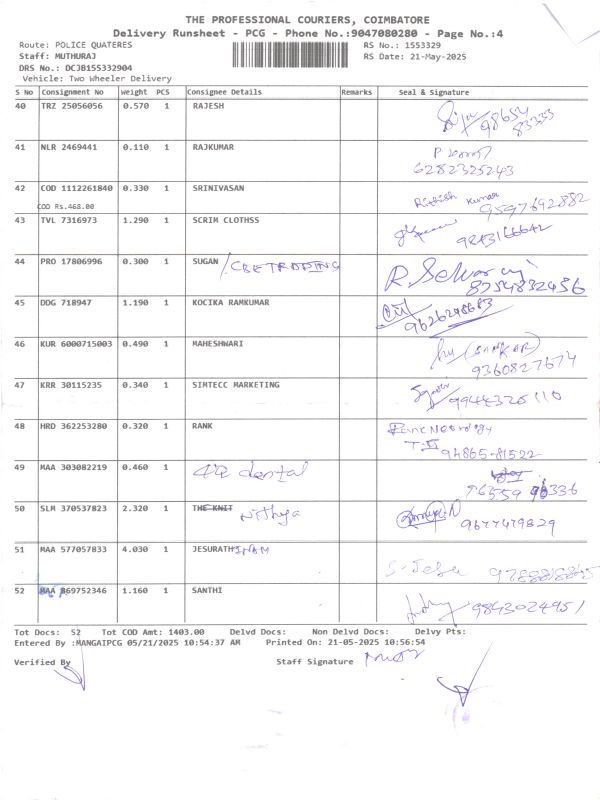 THE PROFESSIONAL COURIERS, COIMBATORE
Delivery Runsheet - PCG - Phone No.:9047080280 - Page No.:4
Route: POLICE QUATERES RS No.: 1553329
Staff: MUTHURAJ RS Date: 21-May-2025
DRS No.: DCJB155332904
Vehicle: Two Wheeler Delivery
S No Consignment No Weight PCS Consignee Details Remarks Seal & Signature
40 TRZ 25056056 0.570 1 RAJESH 98654
83333
41 NLR 2469441 0.110 1 RAJKUMAR
6282325243
42 COD 1112261840 0.330 1 SRINIVASAN Rithish Kumar
COD Rs.468.00 9597692882
43 TVL 7316973 1.290 1 SCRIM CLOTHSS 9843166642
44 PRO 17806996 0.300 1 SUGAN / R Selvaraj
8254832456
45 DDG 718947 1.190 1 KOCIKA RAMKUMAR
9626248683
46 KUR 6000715003 0.490 1 MAHESHWARI
9360827674
47 KRR 30115235 0.340 1 SIMTECC MARKETING 9944326110
48 HRD 362253280 0.320 1 RANK
94865-81522
49 MAA 303082219 0.460 1 dental
50 SLM 370537823 2.320 1 THE KNIT Nithya
9677479829
51 MAA 577057833 4.030 1 JESURATHINAM
52 MAA 869752346 1.160 1 SANTHI 9843024951
Tot Docs: 52 Tot COD Amt: 1403.00 Delvd Docs: Non Delvd Docs: Delvy Pts:
Entered By :MANGAIPCG 05/21/2025 10:54:37 AM Printed On: 21-05-2025 10:56:54
Verified By Staff Signature